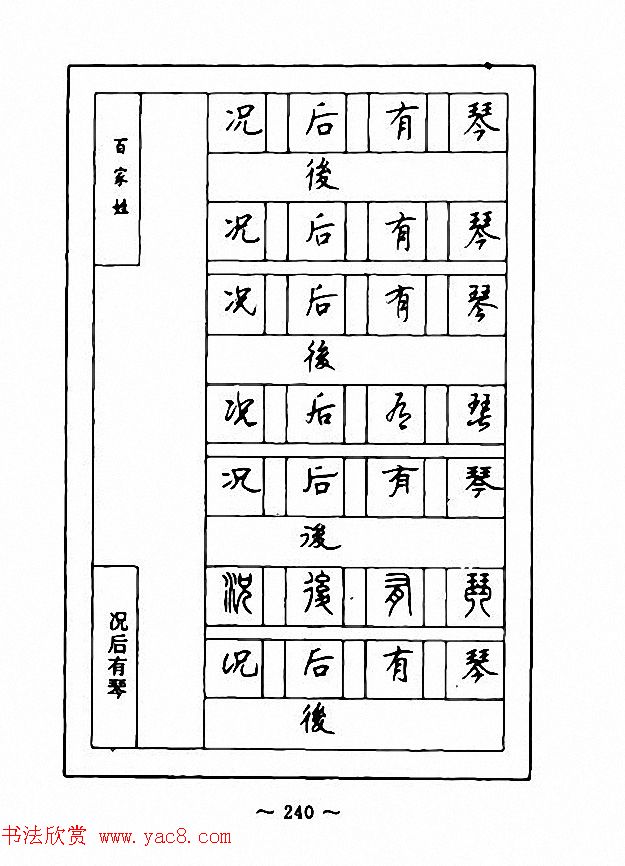 百家姓
况 后 有 琴
後
况 后 有 琴
况 后 有 琴
後
况 后 有 琴
况 后 有 琴
後
況 後 有 琴
况 后 有 琴
後
况后有琴
～ 240 ～
书法欣赏 www.yac8.com